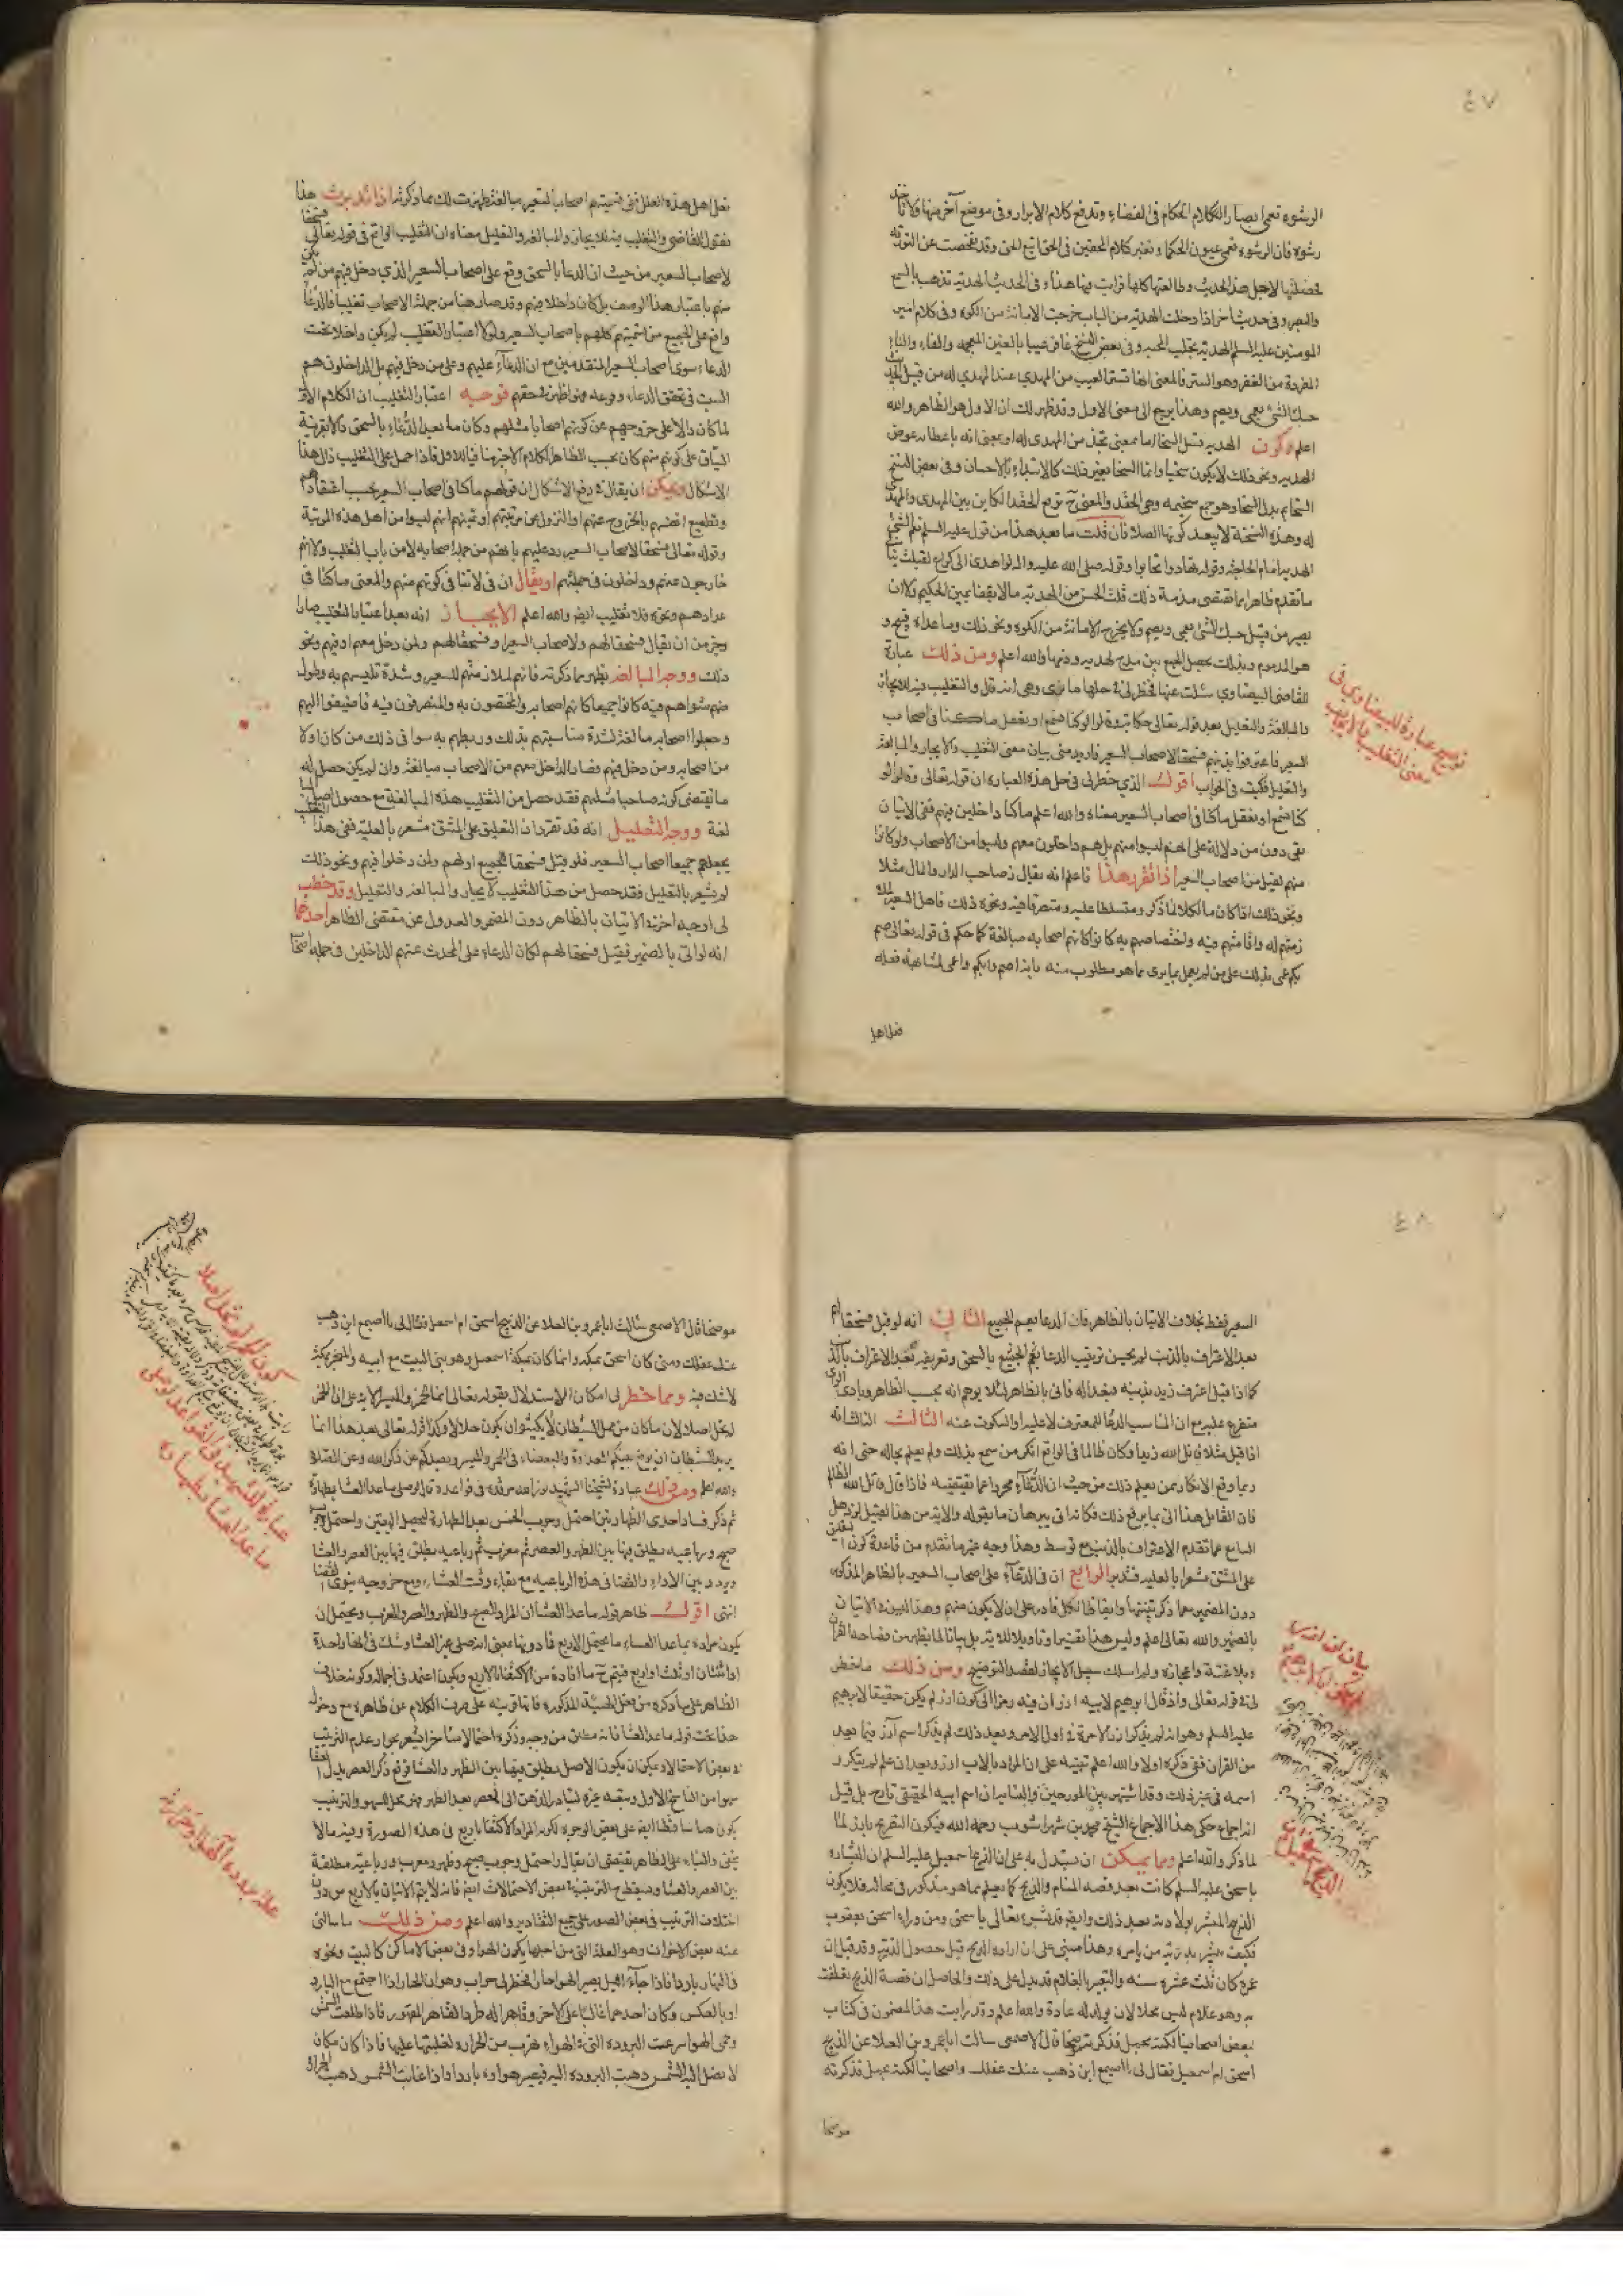 ٤٧
الرشوه تعمى بصار الكلام الحكام فى القضاء وتدفع كلام الابرار وفى موضع آخر منها ولا تاخذ
رشوه فان الرشوه تعمى عيون الحكما وتغير كلام المحقين فى الحق اتبع الحق وقد تفحصت عن التورية
لاجل هذا الحديث وطالعتها كلها فرايت فيها هذا وفى الحديث الهدية تذهب بالسمع
والبصر وفى حديث آخر اذا دخلت الهدية من الباب خرجت الامانة من الكوة وفى كلام امير
المومنين عليه السلم الهدية تجلب المحبه وفى بعض النسخ غافر عيبا بالغين المعجمه والفاء والباء
المفردة من الغفر وهو الستر فالمعنى انها تستر العيب من المهدي عند المهدى له من قبيل الحديث
حبك الشئ يعمى ويصم وهذا يرجع الى معنى الاول وقد ظهر لك ان الاول هو الظاهر والله
اعلم وكون الهدية تسل السخا اما بمعنى تجذ من المهدى له او بمعنى انه باعطائه عوض
الهديه ونحو ذلك لا يكون سخيا وانما السخا بغير ذلك كالابتداء بالاحسان وفى بعض النسخ
السخايم بدل السخا وهو جمع سخيمه وهى الحقد والمعنى ح ترفع الحقد الكاين بين المهدى والمهدى
له وهذه النسخة لا يبعد كونها الصلا فان قلت ما بعد هذا من قول عليه السلم نعم الشئ
الهديه امام الحاجة وقوله تهادوا تحابوا وقوله صلى الله عليه واله لو اهدى الى كراع لقبلت
ما تقدم ظاهرا بما تقتضى مذمة ذلك قلت الحسن من الهدية مالا يفقا عين الحكيم ولا ان
يصير من قبيل حبك الشئ يعمى ويصم ولا يخرج الامانة من الكوه ونحو ذلك وما عداه قبيح و
هو المذموم وبذلك يحصل الجمع بين مدح الهديه وذمها والله اعلم ومن ذلك عبارة
للقاضى البيضاوي سئلت عنها فخطر لى فى حلها ما ترى وهى انه قال والتغليب فيه للايجاز
والمبالغة والتعليل بعد قوله تعالى حكاية لو كنا نسمع او نعقل ما كنا فى اصحاب
السعير فاعترفوا بذنبهم فسحقا لاصحاب السعير فاريد منى بيان معنى التغليب والايجاز والمبالغة
والتعليل فكتبت فى الجواب اقول الذي خطر لى فى حل هذه العباره ان قوله تعالى وقالوا لو
كنا نسمع او نعقل ما كنا فى اصحاب السعير معناه والله اعلم ما كنا داخلين فيهم ففى الاتيان
بفى دون من دلالة على انهم ليسوا منهم بل هم داخلون معهم وليسوا من الاصحاب ولو كانوا
منهم لقيل من اصحاب السعير اذا تقرر هذا فاعلم انه يقال صاحب الدار والمال مثلا
ونحو ذلك اذا كان مالكا لما ذكر ومتسلطا عليه ومتصرفا فيه ونحو ذلك فاهل السعير
زمتهم له واقامتهم فيه واختصاصهم به كانوا كانهم اصحابه مبالغة كما حكم فى قوله تعالى صم
بكم عمى بذلك على من لم يعمل بما يرى مما هو مطلوب منه بانه اصم وابكم واعمى لمشابهة فعله
فعل اهل
توضيح عبارة للبيضاوي فى
معنى التغليب بالايجاب
فعل اهل هذه العلل ففى تسميتهم اصحاب السعير مبالغة ظهرت لك مما ذكرته اذا تدبرت هذا
فنقول القاضى والتغليب فيه للايجاز والمبالغة والتعليل معناه ان التغليب الواقع فى قوله تعالى فسحقا
لاصحاب السعير من حيث ان الدعا بالسحق وقع على اصحاب السعير الذي دخل فيهم من لم يكن
منهم باعتبار هذا الوصف بل كان داخلا فيهم وقد صار هنا من جملة الاصحاب تغليبا فالدعا
واقع على الجميع من تسميتهم كلهم باصحاب السعير ولولا اعتبار التغليب لم يكن داخلا تحت
الدعاء سوى اصحاب السعير المتقدمين مع ان الدعاء عليهم وعلى من دخل فيهم بل الداخلون هم
السبب فى تحقق الدعاء ووقوعه فهو اظهر فى حقهم فوجب اعتبار التغليب ان الكلام الاول
لما كان دالا على خروجهم عن كونهم اصحابا مثلهم وكان ما بعد الدعاء بالسحق دالا بقرينة
السياق على كونهم منهم كان بحسب الظاهر الكلام الاخير منافيا للاول فاذا حمل على التغليب زال هذا
الاشكال ويمكن ان يقال فى دفع الاشكال ان قولهم ما كنا فى اصحاب السعير بحسب اعتقادهم
وتطميع انفسهم بالخروج عنهم او التنزول عن مرتبتهم او تمنيهم انهم ليسوا من اهل هذه المرتبة
وقوله تعالى فسحقا لاصحاب السعير رد عليهم بانهم من جملة اصحابه لا من باب التغليب ولا انهم
خارجون عنهم وداخلون فى جملتهم او يقال ان فى لا تنافى كونهم منهم والمعنى ما كنا فى
عدادهم ونحوه فلا تغليب ايضا والله اعلم الايجاز انه بعد اعتبار التغليب صار
وجيز من ان يقال فسحقا لهم ولاصحاب السعير او فسحقا لهم ولمن دخل معهم او فيهم ونحو
ذلك ووجه المبالغه يظهر مما ذكرته فانهم لملازمتهم للسعير وشدة تلبسهم به وطول
منهم سواهم فيه كانوا جميعا كانهم اصحابه والمختصون به والمتصرفون فيه فاضيفوا اليه
وجعلوا اصحابه مبالغة لشدة مناسبتهم بذلك وربطهم به سوا فى ذلك من كان اولا
من اصحابه ومن دخل فيهم فصار الداخل معهم من الاصحاب مبالغة وان لم يكن حصل له
ما يقتضى كونه صاحبا مثلهم فقد حصل من التغليب هذه المبالغة مع حصول اصل
لغة ووجه التعليل انه قد تقرر ان التعليق على المشتق مشعر بالعلية ففى هذا التغليب
يجعلهم جميعا اصحاب السعير فلو قيل فسحقا لجميع اولهم ولمن دخلوا فيهم ونحو ذلك
لم يشعر بالتعليل فقد حصل من هذا التغليب الايجاز والمبالغه والتعليل وقد خطر
لى اوجه اخر فى الاتيان بالظاهر دون المضمر والعدول عن مقتضى الظاهر احدها
انه لو اتى بالضمير فقيل فسحقا لهم لكان الدعاء على المحدث عنهم الداخلين فى جملة اصحاب
٤٨
السعير فقط بخلاف الاتيان بالظاهر فان الدعا يعم الجميع الثانى انه لو قيل فسحقا لهم
بعد الاعتراف بالذنب لم يحسن ترتيب الدعا
كما اذا قيل اعترف زيد بذنبه فبعدا له فاتى بالظاهر لئلا يوهم انه بحسب الظاهر وبادى الراى
متفرع عليه مع ان المناسب الدعا للمعترف لا عليه او السكوت عنه الثالث انه
اذا قيل مثلا قاتل الله زيدا وكان ظالما فى الواقع انكر من سمع بذلك ولم يعلم بحاله حتى انه
ربما وقع الانكار ممن يعلم ذلك من حيث ان الدعاء مجردا عما يقتضيه فاذا قال قاتل الله الظالم
فان القائل هذا اتى بما يرفع ذلك فكانه اتى ببرهان ما يقوله
السامع عما تقدم الاعتراف بالذنب مع توسط وهذا وجه غير ما تقدم من قاعدة كون التعليق
على المشتق مشعرا بالعليه فتدبر الرابع ان فى الدعاء على اصحاب السعير بالظاهر المذكور
دون المضمر مما ذكر تنبيها وايقاظا لكل قادر على ان لا يكون منهم وهذا ليس فى الاتيان
بالضمير والله تعالى اعلم وليس هذا تفسيرا وتاويلا للاية بل بيانا لما يظهر من فصاحة القرآن
وبلاغته واعجازه ولم اسلك سبيل الايجاز لقصد التوضيح ومن ذلك ما خطر
لى فى قوله تعالى واذ قال ابرهيم لابيه ازر ان فيه رمزا الى كون ازر لم يكن حقيقا لابرهيم
عليه السلم وهو انه لم يذكر ازر الا مرة فى اول الامر وبعد ذلك لم يذكر اسم آزر فيما بعد
من القران ففى ذكره اولا والله اعلم تنبيه على ان المراد بالاب ازر وبعد ان علم لم يتكرر
اسمه فى غير ذلك وقد اشتهر بين المورخين والنسابين ان اسم ابيه الحقيقى تارح بل قيل
انه اجماع حكى هذا الاجماع الشيخ محمد بن شهراشوب رحمه الله فيكون التصريح بابنه لما
لما ذكر والله اعلم ومما يمكن ان يستدل به على ان الذبيح اسمعيل عليه السلم ان البشارة
باسحق عليه السلم كانت بعد قصة المنام والذبح كما يعلم مما هو مذكور فى محاله فلا يكون
الذبيح المبشر بولادته بعد ذلك وايضا قد بشره تعالى باسحق ومن وراء اسحق يعقوب
فكيف يبشر بذريته من يامره وهذا مبنى على ان اراده الذبح قبل حصول الذرية وقد قيل ان
عمره كان ثلث عشره سنه والتعبير بالغلام قد يدل على ذلك والحاصل ان قصة الذبح تعلقت
به وهو غلام ليس محلا لان يولد له عادة والله اعلم وقد رايت هذا المضمون فى كتاب
بعض اصحابنا لكنه مجمل فذكرته موضحا قال الاصمعى سالت ابا عمرو بن العلا عن الذبيح
اسحق ام اسمعيل فقال لى يا اصيمع اين ذهب عنك عقلك واصحابنا لكنه مجمل فذكرته
موضحا
بيان ان آزر
لم يكن ابا لابرهيم
الذبيح اسمعيل
موضحا قال الاصمعى سالت ابا عمرو بن العلا عن الذبيح اسحق ام اسمعيل فقال لى يا اصيمع اين ذهب
عنك عقلك ومتى كان اسحق بمكه وانما كان بمكة اسمعيل وهو بنى البيت مع ابيه والمنحر بمكة
لا شك فيه ومما خطر لى امكان الاستدلال بقوله تعالى انما الخمر والميسر الاية على ان الخمر
لم تحل اصلا لان ما كان من عمل الشيطان لا يمكن ان يكون حلالا وكذا قوله تعالى بعد هذا انما
يريد الشيطان ان يوقع بينكم العداوة والبغضاء فى الخمر والميسر ويصدكم عن ذكر الله وعن الصلاة
والله اعلم ومن ذلك عبارة لشيخنا الشهيد نور الله مرقده فى قواعده قال لو صلى ما عدا العشا بطهارة
ثم ذكر فساد احدى الطهارتين احتمل وجوب الخمس بعد الطهارة لتحصيل اليقين واحتمل
صبح ورباعيه يطلق فيها بين الظهر والعصر ثم مغرب ثم رباعيه يطلق فيها بين العصر والعشا
ويردد بين الاداء والقضا فى هذه الرباعيه مع بقاء وقت العشاء ومع خروجه ينوى القضا
انتهى اقول ظاهر قوله ما عدا العشا ان المراد الصبح والظهر والعصر والمغرب ويحتمل ان
يكون مراده بما عدا العشاء ما يحتمل الاربع فما دونها بمعنى انه صلى غير العشا وشك فى انها واحدة
او اثنتان او ثلث او اربع فيتم ح ما افاده من الاكتفا بالاربع ويكون اعتمد فى اجماله وكونه خلاف
الظاهر على ما ذكره
حذا تحت قوله ما عدا العشا فانه مطلق من وجه وذكره احتمالا اخر اشعر بجواز عدم الترتيب
فى بعض الاحتمالات ويمكن ان يكون الاصل مطلق فيها بين الظهر والعشا فوقع ذكر العصر بدل العشا
سهوا من الناسخ الاول وتبعه غيره لتبادر الذهن الى العصر بعد الظهر فهو محل للسهو والترتيب
يكون ساقطا ايضا على بعض الوجوه لكونه المراد الاكتفا باربع فى هذه الصورة وفيه مالا
يخفى والبناء على الظاهر يقتضى ان يقال واحتمل وجوب صبح وظهر ومغرب ورباعية مطلقة
بين العصر والعشا ويسقط ح الترتيب فى بعض الاحتمالات ايضا فانه لا يتم الاتيان بالاربع من دون
اختلاف الترتيب فى بعض الصور على جميع التقادير والله اعلم ومن ذلك ما سالنى
عنه بعض الاخوان وهو العلة التى من اجلها يكون الهوا فى بعض الاماكن كالبيت ونحوه
فى النهار باردا فاذا جاء الليل يصير الهوا حارا فخطر لى جواب وهو ان الحار اذا اجتمع مع البارد
او بالعكس وكان احدهما غالبا على الاخر وقاهرا له طرد القاهر المقهور فاذا طلعت الشمس
وحمى الهوا سرعت البروده التى فى الهواء تهرب من الحراره لغلبتها عليها فاذا كان مكان
لا تصل اليه الشمس ذهبت البروده اليه فيصير هواوه باردا واذا غابت الشمس ذهبت الحرارة
كون الخمر لم تحل اصلا
عبارة للشهيد فى القواعد لو صلى
ما عدا العشا بطهارة
علة برودة الهوا وحرارته